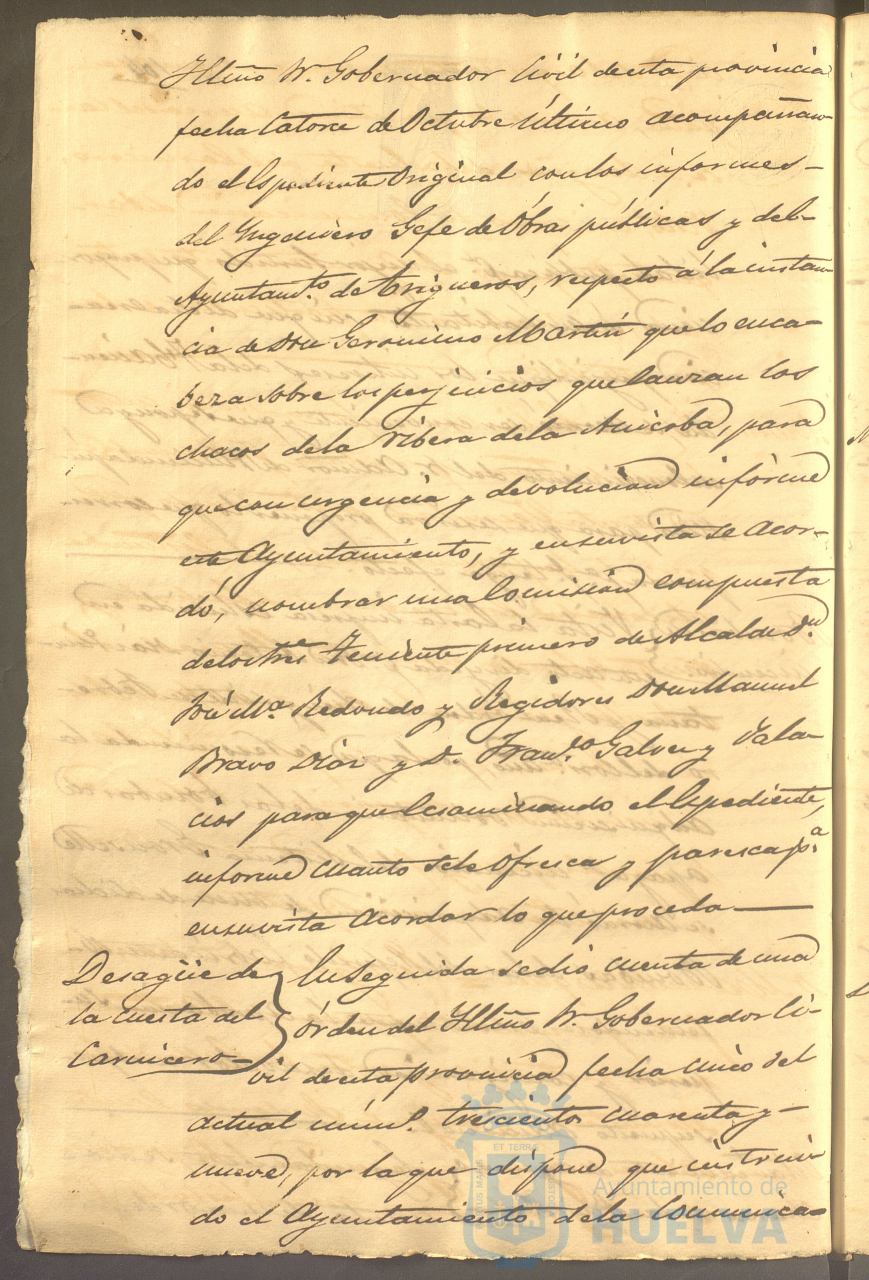 Illmo Sr. Gobernador Civil de esta provincia
fecha Catorce de Octubre último acompañan-
do el Espediente Original con los informes
del Yngeniero Gefe de Obras públicas y del
Ayuntamto. de Trigueros, respecto á la instan-
cia de Don Geronimo Martin que lo enca-
beza sobre los perjuicios que causan los
chacos de la ribera de la Anicoba, para
que con urgencia y devolucion informe
este Ayuntamiento, y en su vista se acor-
dó, nombrar una Comision compuesta
de los Sres Teniente primero de Alcalde Dn
José Ma. Redondo y Regidores Don Manuel
Bravo Diaz y D. Franco. Galvez y Pala-
cios para que Ecsaminando el Espediente,
informe cuanto se le Ofresca y paresca pa.
en su vista Acordar lo que proceda
Desagüe de
la cuesta del
Carnicero
En Seguida se dió cuenta de una
órden del Illmo Sr. Gobernador Ci-
vil de esta provincia fecha cinco del
actual núm. trescientos cuarenta y
nueve, por la que dispone que instruin-
do el Ayuntamiento de la Comunica-
ET TERRA
Ayuntamiento de
HUELVA